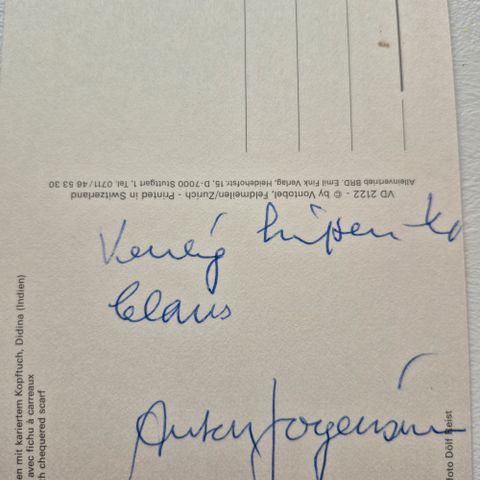 VD 2122 - © by Vontobel, Feldmeilen/Zurich - Printed in Switzerland
Alleinvertrieb BRD. Emil Fink Verlag, Heidehofstr. 15, D-7000 Stuttgart 1, Tel. 0711/46 53 30
Venlig hilsen til
Claus
Jorgensen
en mit kariertem Kopftuch, Didina (Indien)
avec fichu à carreaux
h chequered scarf
foto Dölf Reist